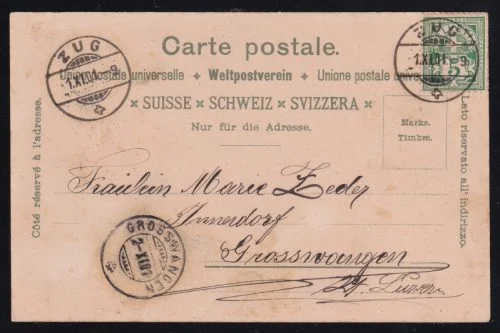 Carte postale.
Union postale universelle + Weltpostverein + Unione postale universale
× SUISSE × SCHWEIZ × SVIZZERA ×
Nur für die Adresse.
Côté réservé à l'adresse.
Lato riservato all' indirizzo.
Marke.
Timbre.
ZUG
1.XI.01
ZUG
1.XI.01 - 9
5
Fräulein Marie Zeder
Innerdorf
Grosswangen
Kt. Luzern
GROSSWANGEN
2.XI.01